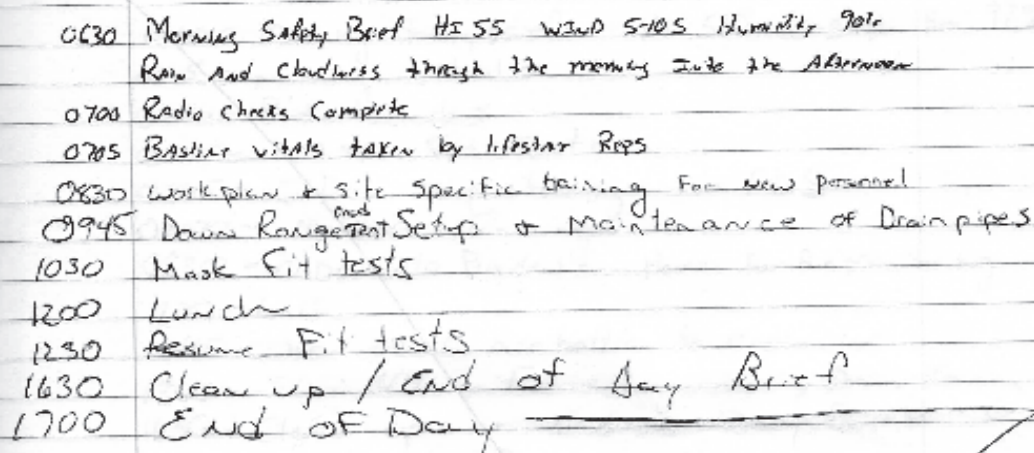 0630 Morning Safety Brief HI 55 WIND 5-10 S Humidity 90%
Rain And Cloudiness through the morning Into the Afternoon
0700 Radio Checks Complete
0705 BAsline vitAls taken by lifestar Reps
0830 workplan & site specific training For new personnel
0945 Down Range and Tent Setup & Maintenance of Drainpipes
1030 Mask fit tests
1200 Lunch
1230 Resume Fit tests
1630 Clean up / End of Day Brief
1700 End of Day